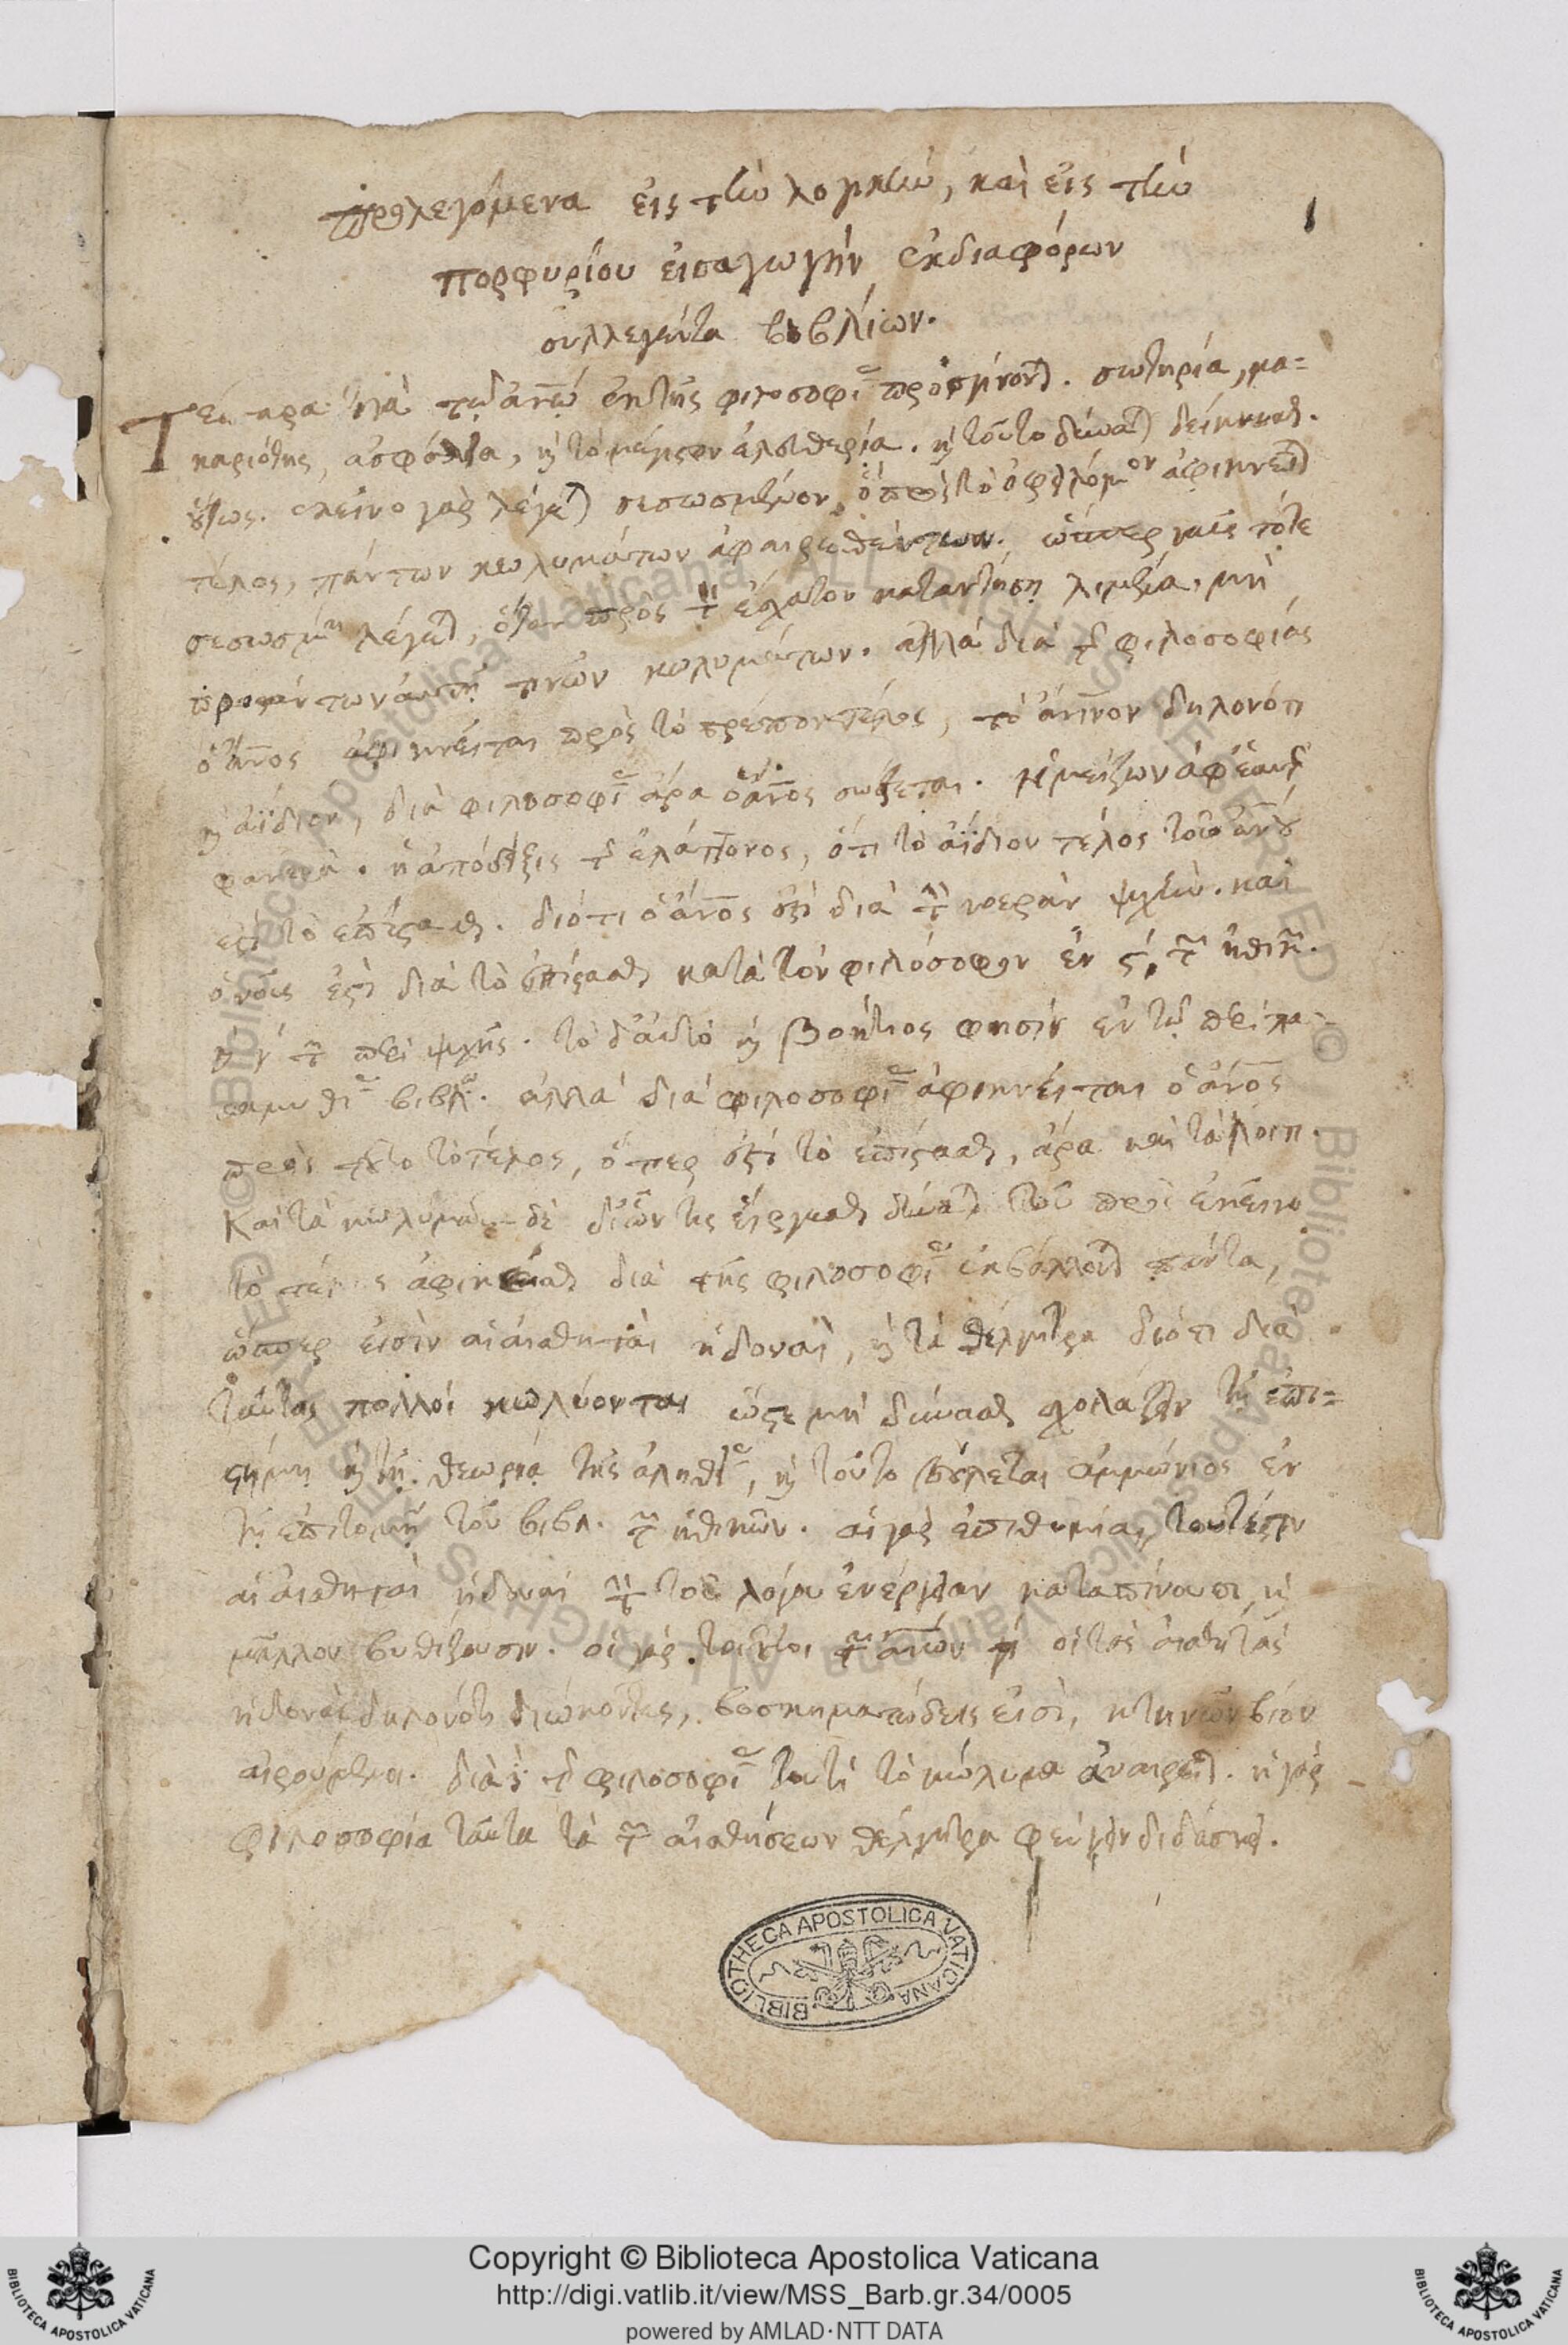 προλεγόμενα εἰς τὴν λογικὴν, καὶ εἰς τὴν
πορφυρίου εἰσαγωγὴν ἐκ διαφόρων
συλλεγέντα βιβλίων.
1
Τέσσαρα τῷ ἀνω ἐκ τῆς φιλοσοφί προσγίνονται. σωτηρία, μα=
καριότης, , καὶ τὸ μέγιστον ἐλευθερία. καὶ τοῦτο δύναται δείκνυσθαι.
οὕτως. ἐκεῖνο γὰρ λέγεται σεσωσμένον, ὃ πρὸς τὸ ὀφειλόμενον ἀφικνεῖται
τέλος, πάντων κωλυμάτων ἀφαιρεθέντων. ὥσπερ ναῦς τότε
σεσωσμένη λέγεται, ὅταν πρὸς τὸν ἔσχατον καταντήσῃ λιμένα, μὴ
τινῶν κωλυμάτων. ἀλλὰ διὰ τῆς φιλοσοφίας
ὁ ἄνος ἀφικνεῖται πρὸς τὸ πρέπον τέλος, τὸ δηλονότι
καὶ ἀΐδιον, διὰ φιλοσοφί ἄρα ὁ ἄνος σώζεται. ἡ μείζων ἀφ' ἑαυτῆς
φανερὰ. ἡ ἀπόδειξις τῆς ἐλάττονος, ὅτι τὸ ἀΐδιον τέλος τοῦ ἀνου
ἐστὶ τὸ ἐπίστασθαι. διότι ὁ ἄνος ἐστὶ διὰ τὴν νοερὰν ψυχήν. καὶ
ὁ νοῦς ἐστὶ διὰ τὸ ἐπίστασθαι κατὰ τὸν φιλόσοφον ἐν ϛ, τῶν ἠθικῶν.
τῶν περὶ ψυχῆς. τὸ δ' αὐτὸ καὶ Βοήτιος φησὶν ἐν τῷ περὶ πα-
ραμυθί βιβλ. ἀλλὰ διὰ φιλοσοφί ἀφικνεῖται ὁ ἄνος
πρὸς τοῦτο τὸ τέλος, ὅπερ ἐστὶ τὸ ἐπίστασθαι, ἄρα καὶ τὰ λοιπ.
Καὶ τὰ κωλύματα δὲ δι' ὧν τις εἴργεσθαι δύναται τοῦ πρὸς ἐκεῖνο
τὸ τέλος ἀφικέσθαι διὰ τῆς φιλοσοφί ἐκβάλλονται πάντα,
ὥσπερ εἰσὶν αἱ αἰσθηταὶ ἡδοναὶ, καὶ τὰ θέλγητρα διότι διὰ
ταύτας πολλοὶ κωλύονται ὥστε μὴ δύνασθαι σχολάζειν τῇ ἐπι=
στήμῃ καὶ τῇ θεωρίᾳ τῆς ἀληθεί, καὶ τοῦτο βούλεται ἀμμώνιος ἐν
τῇ ἐπιτομῇ τοῦ βιβλ. τῶν ἠθικῶν. αἱ γὰρ ἐπιθυμίαι, τουτέστιν
αἱ αἰσθηταὶ ἡδοναὶ τὴν τοῦ λόγου ἐνέργειαν καταπίνουσι καὶ
μᾶλλον βυθίζουσιν. οἱ γὰρ τοιοῦτοι τῶν ἀνων οἱ τὰς αἰσθητὰς
ἡδονὰς δηλονότι διώκοντες, βοσκηματώδεις εἰσὶ, κτηνῶν βίον
αἱρούμενοι. διὰ τῆς φιλοσοφί ταυτὶ τὸ κώλυμα ἀναιρεῖται. ἡ γὰρ
φιλοσοφία ταῦτα τὰ τῶν αἰσθήσεων θέλγητρα φεύγειν διδάσκει.
BIBLIOTHECA APOSTOLICA VATICANA
Copyright © Biblioteca Apostolica Vaticana
http://digi.vatlib.it/view/MSS_Barb.gr.34/0005
powered by AMLAD·NTT DATA